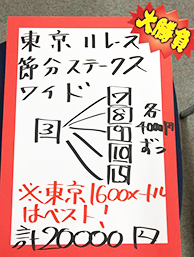 大勝負
東京11レース
節分ステークス
ワイド
3
7
8
9
10
15
各
4000円
ずつ
※東京1600メートル
はベスト!
計20000円